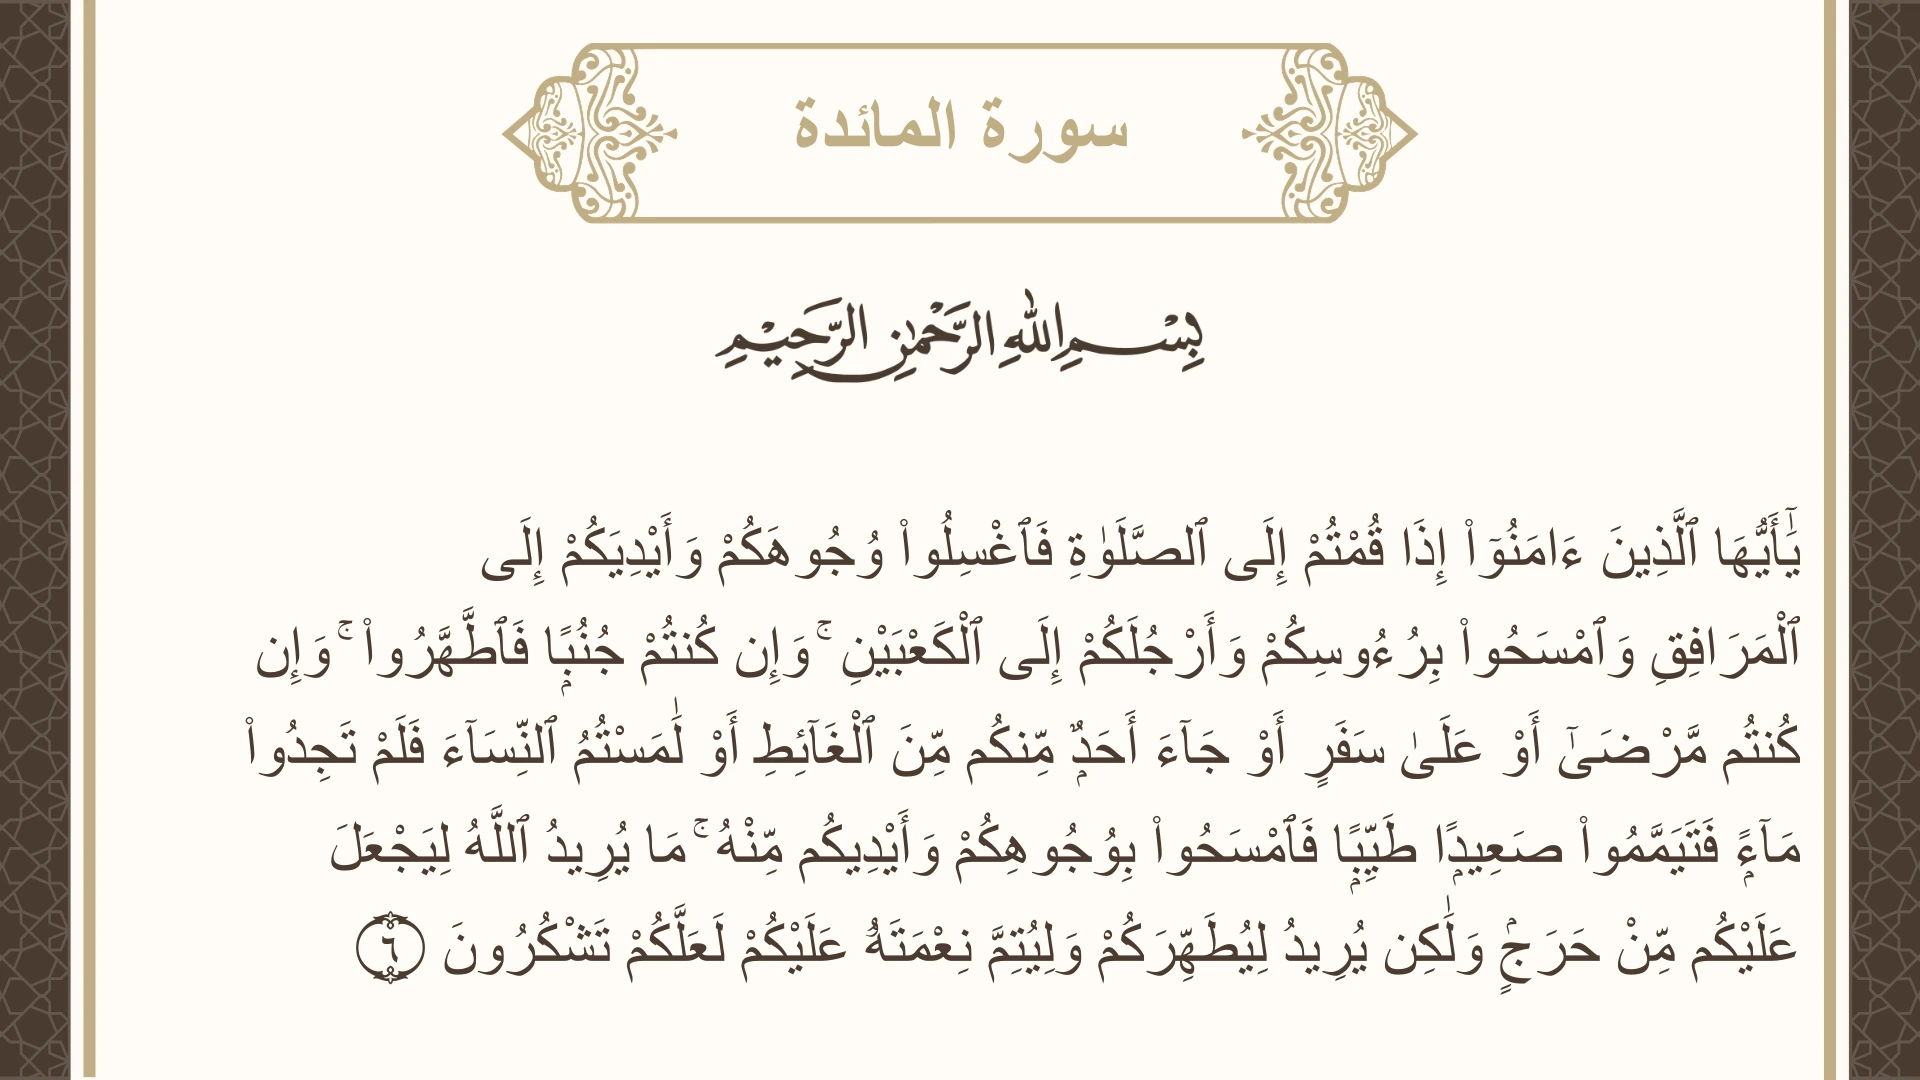 سورة المائدة
بِسْمِ اللهِ الرَّحْمٰنِ الرَّحِيْمِ
يَٰٓأَيُّهَا ٱلَّذِينَ ءَامَنُوٓا۟ إِذَا قُمْتُمْ إِلَى ٱلصَّلَوٰةِ فَٱغْسِلُوا۟ وُجُوهَكُمْ وَأَيْدِيَكُمْ إِلَى
ٱلْمَرَافِقِ وَٱمْسَحُوا۟ بِرُءُوسِكُمْ وَأَرْجُلَكُمْ إِلَى ٱلْكَعْبَيْنِ ۚ وَإِن كُنتُمْ جُنُبًۭا فَٱطَّهَّرُوا۟ ۚ وَإِن
كُنتُم مَّرْضَىٰٓ أَوْ عَلَىٰ سَفَرٍ أَوْ جَآءَ أَحَدٌۭ مِّنكُم مِّنَ ٱلْغَآئِطِ أَوْ لَٰمَسْتُمُ ٱلنِّسَآءَ فَلَمْ تَجِدُوا۟
مَآءًۭ فَتَيَمَّمُوا۟ صَعِيدًۭا طَيِّبًۭا فَٱمْسَحُوا۟ بِوُجُوهِكُمْ وَأَيْدِيكُم مِّنْهُ ۚ مَا يُرِيدُ ٱللَّهُ لِيَجْعَلَ
عَلَيْكُم مِّنْ حَرَجٍۢ وَلَٰكِن يُرِيدُ لِيُطَهِّرَكُمْ وَلِيُتِمَّ نِعْمَتَهُۥ عَلَيْكُمْ لَعَلَّكُمْ تَشْكُرُونَ ٦